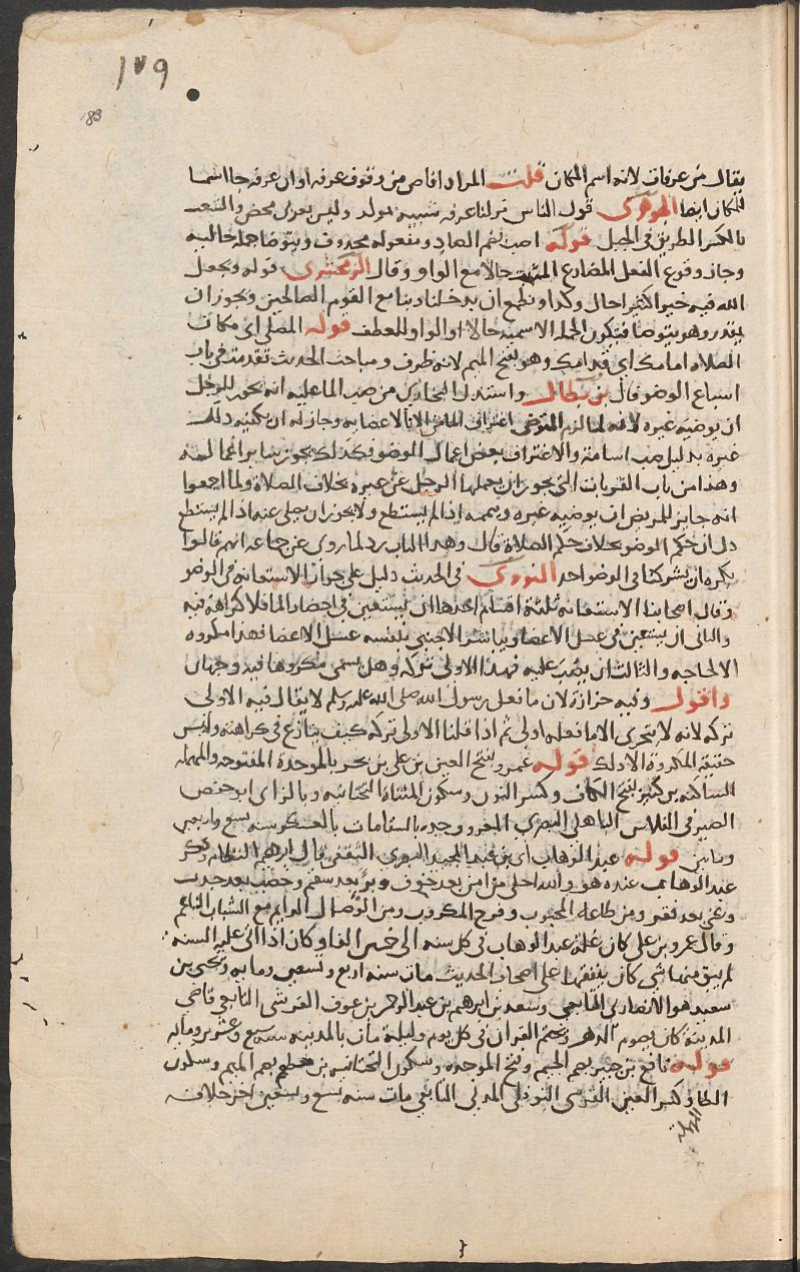 ١٧٩
183
يقال من عرفات لانه اسم المكان قلت المراد افاض من وقوف عرفه او ان عرفه جا اسما
للمكان ايضا الجوهري قول الناس نزلنا عرفه شبيه بمولد وليس بعربي محض والشعب
بالكسر الطريق في الجبل قوله اصب بضم الصاد ومفعوله محذوف ويتوضا جملة حاليه
وجاز وقوع الفعل المضارع المثبت حالا مع الواو وقال الزمخشري قوله ويجعل
الله فيه خيرا كثيرا حال وكذا ونطمع ان يدخلنا ربنا مع القوم الصالحين ويجوز ان
يقدر وهو يتوضا فيكون الجملة الاسميه حالا او الواو للعطف قوله المصلى اي مكان
الصلاه امامك اي قدامك وهو بفتح الميم لانه ظرف ومباحث الحديث تقدمت في باب
اسباغ الوضو قال بن بطال واستدل البخاري من صب الما عليه انه يجوز للرجل
ان يوضيه غيره لانه لما لزم المتوضى اغتراف الما من الانا لاعضايه وجاز له ان يكفيه ذلك
غيره بدليل صب اسامة والاغتراف بعض اعمال الوضو فكذلك يجوز ساير اعماله
وهذا من باب القربات التي يجوز ان يعملها الرجل عن غيره بخلاف الصلاة ولما اجمعوا
انه جايز للمريض ان يوضيه غيره وييممه اذا لم يستطع ولا يجوز ان يصلى عنه اذا لم يستطع
دل ان حكم الوضو بخلاف حكم الصلاة قال وهذا الباب رد لما روى عن جماعه انهم قالوا
يكره ان يشركنا في الوضو احد النووي في الحديث دليل على جواز الاستعانه في الوضو
وقال اصحابنا الاستعانه ثلثة اقسام احدها ان يستعين في احضار الما فلا كراهة فيه
والثانى ان يستعين في غسل الاعضا ويباشر الاجنبي بنفسه غسل الاعضا فهذا مكروه
الا لحاجه والثالث ان يصب عليه فهذا الاولى تركه وهل يسمى مكروها فيه وجهان
واقول وفيه حزازة لان ما فعل رسول الله صلى الله عليه وسلم لا يقال فيه الاولى
تركه لانه لا يتحرى الا ما فعله اولى ثم اذا قلنا الاولى تركه كيف ينازع في كراهته وليس
حقيقه المكروه الا ذلك قوله عمرو بفتح العين بن علي بن بحر بالموحدة المفتوحه والمهمله
الساكنه بن كنيز بفتح الكاف وكسر النون وسكون المثناة التحتانيه وبالزاى ابو حفص
الصيرفى الفلاس الباهلى البصري المعروف وجوده بالسقامات بالعسكر سنه تسع واربعين
ومايتين قوله عبد الوهاب اى بن عبد المجيد البصرى الثقفى قال ابرهيم النظام وذكر
عبد الوهاب عنده هو والله احلى من امن بعد خوف وبرء بعد سقم وخصب بعد جدب
وغنى بعد فقر ومن طاعه المحبوب وفرج المكروب ومن الوصال الدايم مع الشباب الناعم
وقال عمرو بن على كان غلة عبد الوهاب في كل سنه الى خمسين الفا وكان اذا اتى عليه السنه
لم يبق منها شى كان ينفقها على اصحاب الحديث مات سنه اربع وتسعين ومايه ويحيى بن
سعيد هو الانصاري التابعي وسعد بن ابرهيم بن عبد الرحمن بن عوف القرشي التابعي قاضى
المدينة كان يصوم الدهر ويختم القران في كل يوم وليلة مات بالمدينه سنه سبع وعشرين ومايه
قوله نافع بن جبير بضم الجيم وفتح الموحدة وسكون التحتانيه بن مطعم بضم الميم وسكون
الطا وكسر العين القرشى النوفلى المدنى التابعى مات سنه تسع وتسعين اخر خلافه